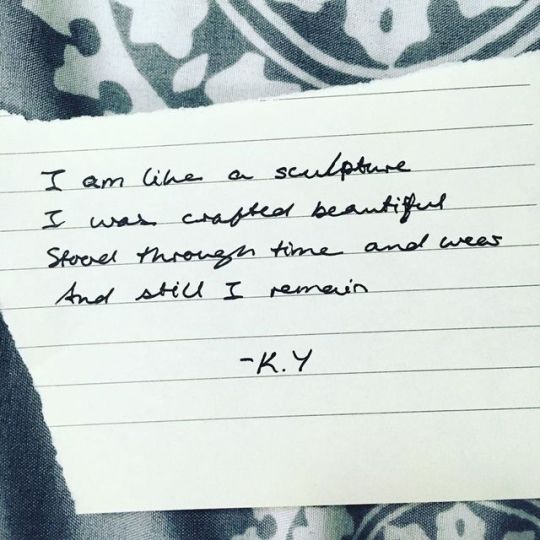 I am like a sculpture
I was crafted beautiful
Stood through time and wear
And still I remain
-K.Y